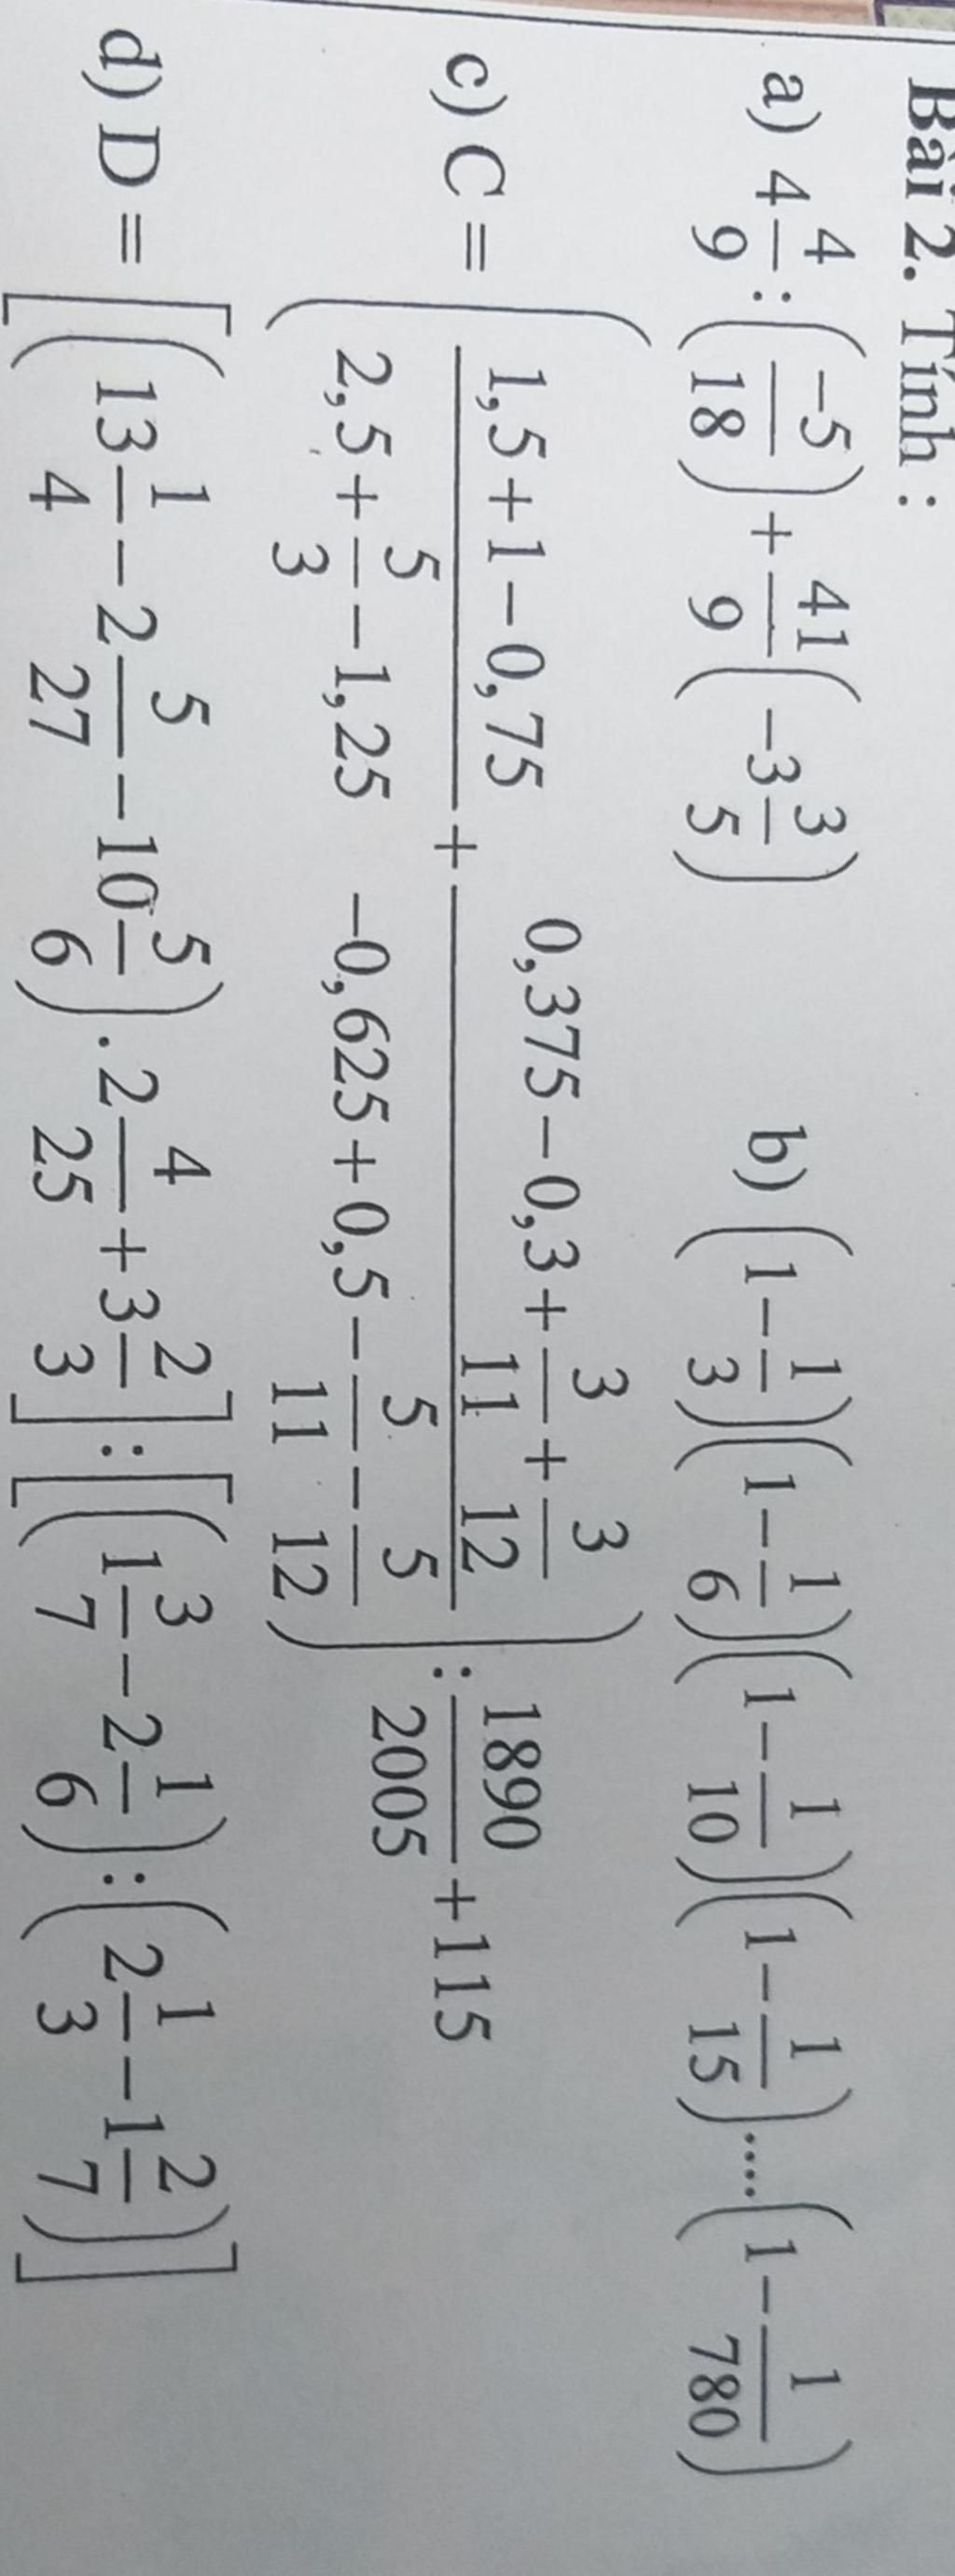 Bài 2. Tính :
a) 4 4/9 : (-5/18) + 41/9 (-3 3/5) b) (1 - 1/3)(1 - 1/6)(1 - 1/10)(1 - 1/15)....(1 - 1/780)
c) C = ((1,5 + 1 - 0,75)/(2,5 + 5/3 - 1,25) + (0,375 - 0,3 + 3/11 + 3/12)/(-0,625 + 0,5 - 5/11 - 5/12)) : 1890/2005 + 115
d) D = [(13 1/4 - 2 5/27 - 10 5/6) . 2 4/25 + 3 2/3] : [(1 3/7 - 2 1/6) : (2 1/3 - 1 2/7)]